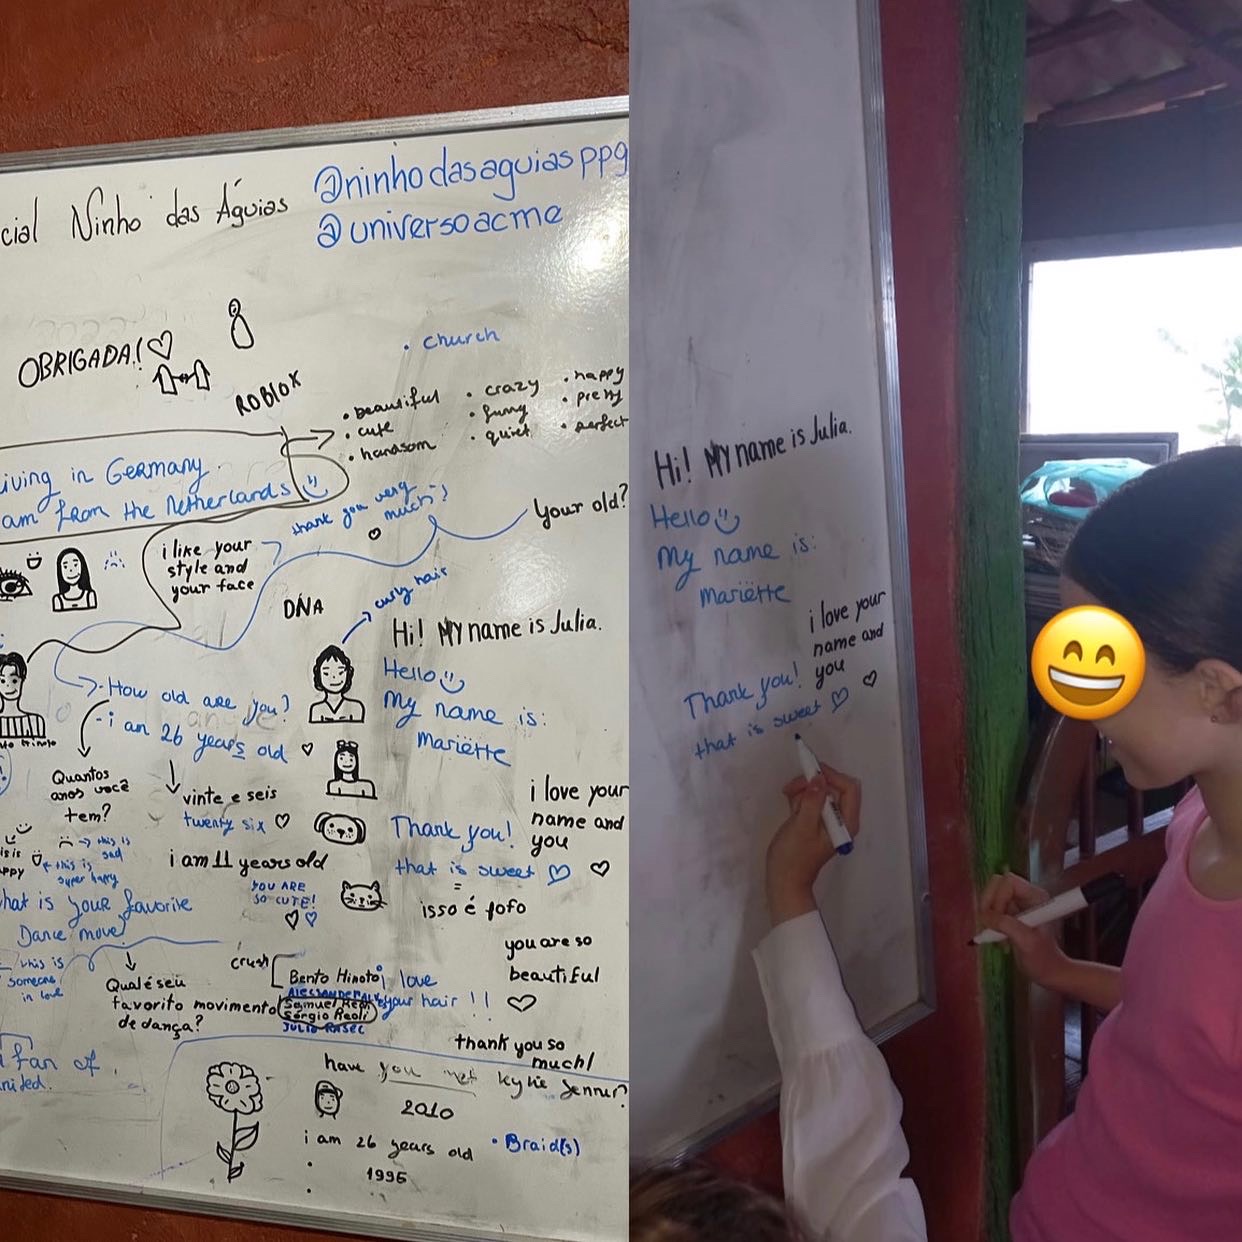 cial Ninho das Águias
@ninhodasaguiasppg
@universoacme
OBRIGADA!
ROBLOX
church
beautiful
cute
handsom
crazy
funny
quiet
happy
pretty
perfect
iving in Germany.
am from the Netherlands
thank you very
much
your old?
i like your
style and
your face
DNA
curly hair
Hi! My name is Julia.
Hello
My name is:
Mariëtte
How old are you?
i an 26 years old
Quantos
anos você
tem?
vinte e seis
twenty six
i am 11 years old
YOU ARE
SO CUTE!
this is
sad
this is
super happy
i love your
name and
you
Thank you!
that is sweet
=
isso é fofo
hat is your favorite
Dance move
this is
someone
in love
Qual é seu
favorito movimento
de dança?
crush
Bento Hinoto
Sérgio Reoli
i love
your hair !!
you are so
beautiful
thank you so
much!
fan of
have you met Kylie Jenner?
2010
i am 26 years old
1996
Braid(s)
Hi! My name is Julia.
Hello
My name is:
Mariëtte
i love your
name and
you
Thank you!
that is sweet